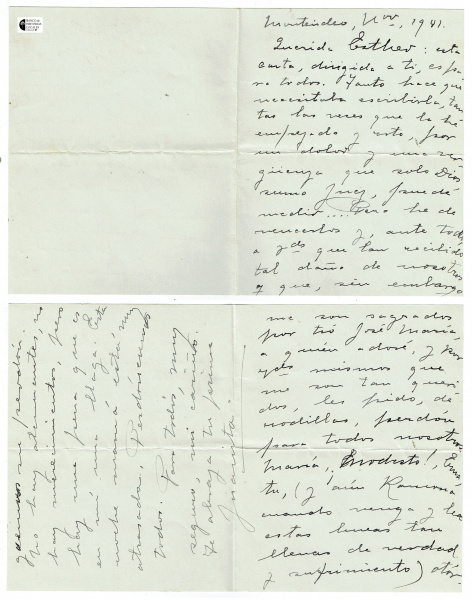 Montevideo, Nov. 1941.
Querida Esther: esta
carta, dirigida a ti, es pa-
ra todos. Tanto hace que
necesitaba escribirla, tan-
tas las veces que la he
empezado y roto, por
un dolor y una ver-
güenza que solo Dios
sumo Juez, puede
medir... Pero he de
vencerlos y, ante todo
a Vds que han recibido
tal daño de nosotros
y que, sin embargo
me son sagrados
por tío José María,
a quién adoré, y por
Vds mismos que
me son tan queri-
dos, les pido, de
rodillas, perdón
para todos nosotros
María, Modesto!, Ema,
tu, (y aún Ramona
cuando venga y lea
estas líneas tan
llenas de verdad
y sufrimiento) otór-
guennos su perdón.
No hay atenuantes, no
hay merecimientos, pero
hay una pena que es
en mí una llaga. Esta
noche mamá está muy
atrasada. Perdónennos
todos. Para todos, muy
seguro, mi cariño.
Te abraza tu prima
Juanita.